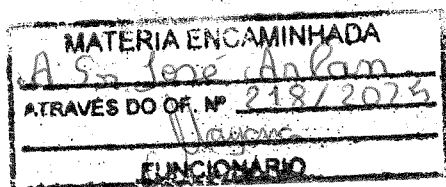 MATERIA ENCAMINHADA
A Sr José Arlan
ATRAVÉS DO OF. Nº 218/2025
Nayana
FUNCIONÁRIO